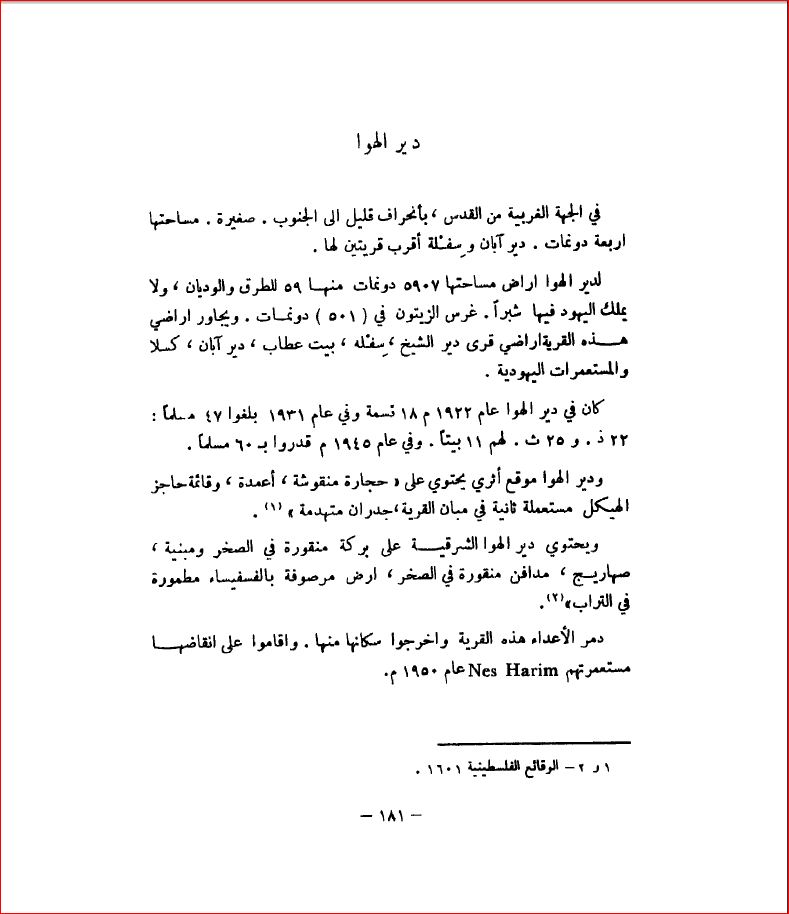 دير الهوا
في الجهة الغربية من القدس ، بأنحراف قليل الى الجنوب . صغيرة . مساحتها
اربعة دونمات . دير آبان وسِفْلة أقرب قريتين لها .
لدير الهوا اراض مساحتها ٥٩٠٧ دونمات منهــا ٥٩ للطرق والوديان ، ولا
يملك اليهود فيها شبراً . غرس الزيتون في ( ٥٠١ ) دونمــات . ويجاور اراضي
هــــذه القريةاراضي قرى دير الشيخ ، سِفْله ، بيت عطاب ، دير آبان ، كسلا
والمستعمرات اليهودية .
كان في دير الهوا عام ١٩٢٢ م ١٨ نسمة وفي عام ١٩٣١ بلغوا ٤٧ مسلماً :
٢٢ ذ . و ٢٥ ث . لهم ١١ بيتاً . وفي عام ١٩٤٥ م قدروا بـ ٦٠ مسلماً .
ودير الهوا موقع أثري يحتوي على « حجارة منقوشة ، أعمدة ، وقائمة حاجز
الهيكل مستعملة ثانية في مبان القرية ،جدران متهدمة » (١) .
ويحتوي دير الهوا الشرقيــــة على بركة منقورة في الصخر ومبنية ،
صهاريــج ، مدافن منقورة في الصخر ، ارض مرصوفة بالفسفيساء مطمورة
في التراب»(٢).
دمر الأعداء هذه القرية واخرجوا سكانها منها . واقاموا على انقاضهــــا
مستعمرتهم Nes Harim عام ١٩٥٠ م.
١ و ٢ – الوقائع الفلسطينية ١٦٠١ .
– ١٨١ –